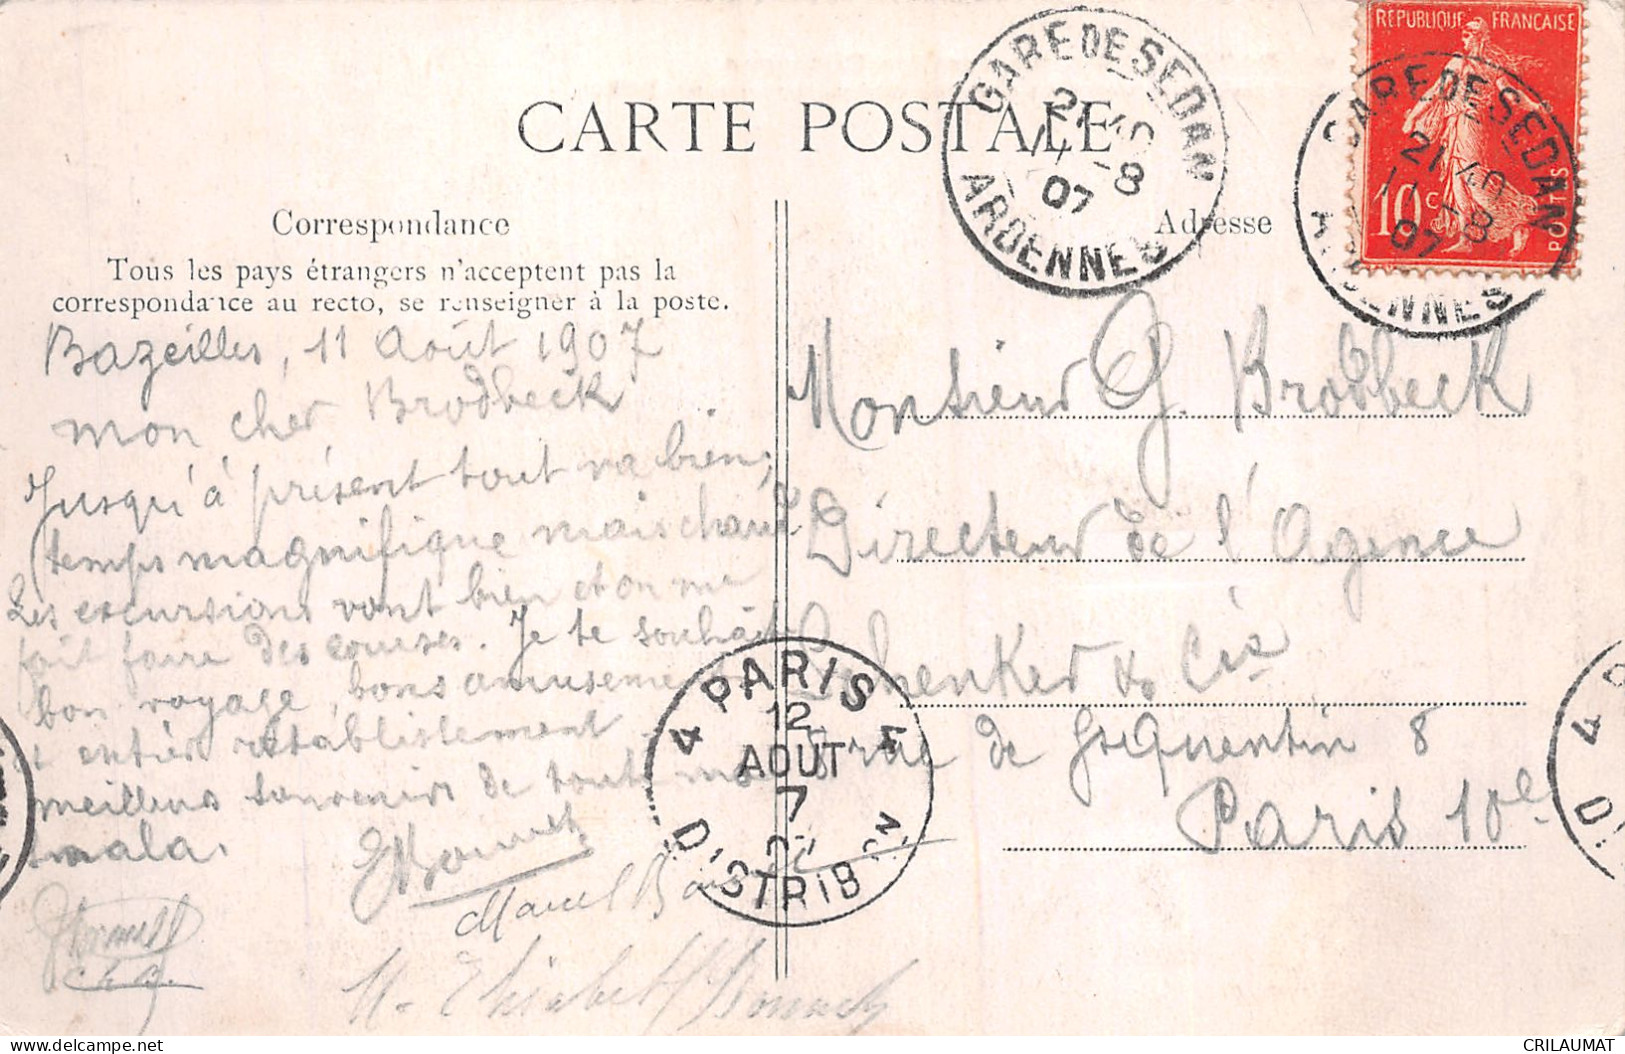 CARTE POSTALE
Correspondance
Tous les pays étrangers n'acceptent pas la
correspondance au recto, se renseigner à la poste.
Bazeilles, 11 Août 1907
mon cher Brodbeck
Jusqu'à présent tout va bien,
temps magnifique mais chaud
Les excursions vont bien et on me
fait faire des courses. Je te souhait
bon voyage, bons amusements
et entier retablissement
meilleurs souvenirs de toute ma
smala.
Marcel
Adresse
Monsieur G. Brodbeck
Directeur de l'Agence
Schenker & Cie
rue de St Quentin 8
Paris 10e
GARE DE SEDAN
21 40
11 -8
07
ARDENNES
REPUBLIQUE FRANÇAISE
10 c
POSTES
GARE DE SEDAN
21 40
11 -8
07
ARDENNES
4 PARIS 4
12
AOUT
7
07
DISTRIBON
4
D
CRILAUMAT
delcampe.net